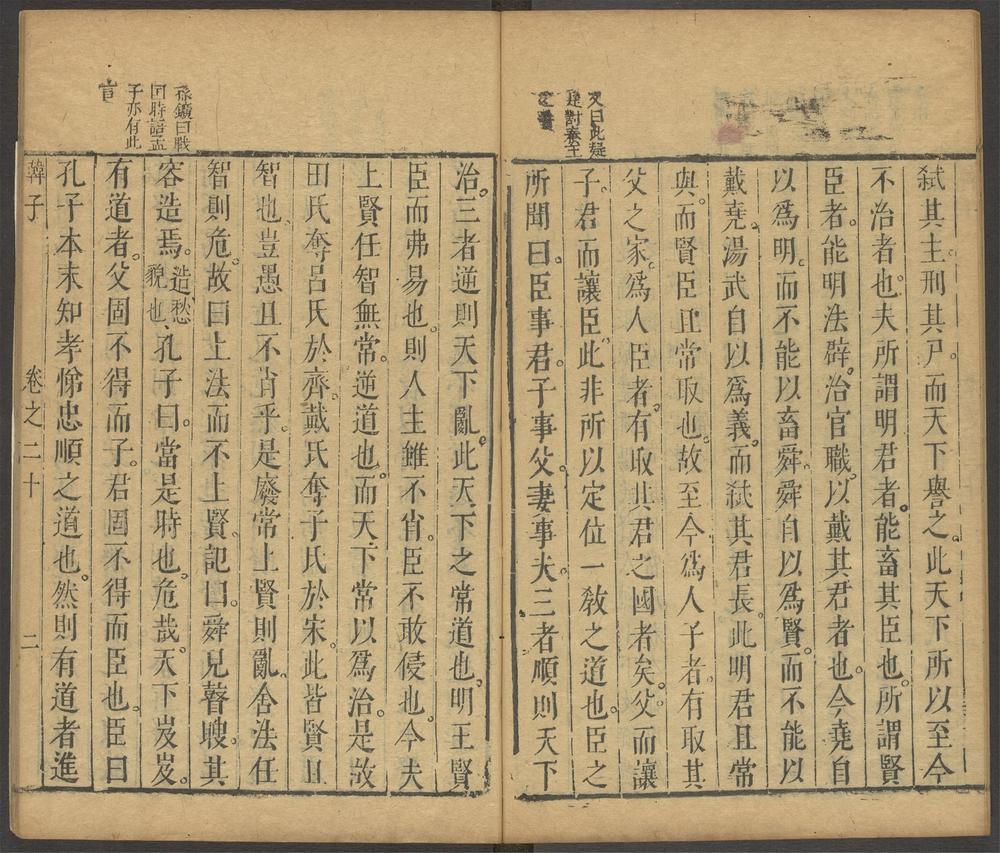 弑其主刑其尸而天下譽之此天下所以至今
不治者也夫所謂明君者能畜其臣也所謂賢
臣者能明法辟治官職以戴其君者也今堯自
以爲明而不能以畜舜舜自以爲賢而不能以
戴堯湯武自以爲義而弑其君長此明君且常
與而賢臣且常取也故至今爲人子者有取其
父之家爲人臣者有取其君之國者矣父而讓
子君而讓臣此非所以定位一教之道也臣之
所聞曰臣事君子事父妻事夫三者順則天下
又曰此疑
是對秦王
之書
治三者逆則天下亂此天下之常道也明王賢
臣而弗易也則人主雖不肖臣不敢侵也今夫
上賢任智無常逆道也而天下常以爲治是故
田氏奪呂氏於齊戴氏奪子氏於宋此皆賢且
智也豈愚且不肖乎是廢常上賢則亂舍法任
智則危故曰上法而不上賢記曰舜見瞽瞍其
容造焉造愁貌也孔子曰當是時也危哉天下岌岌
有道者父固不得而子君固不得而臣也臣曰
孔子本未知孝悌忠順之道也然則有道者進
孫鑛曰戰
國時語孟
子亦有此
言
韓子 卷之二十 二